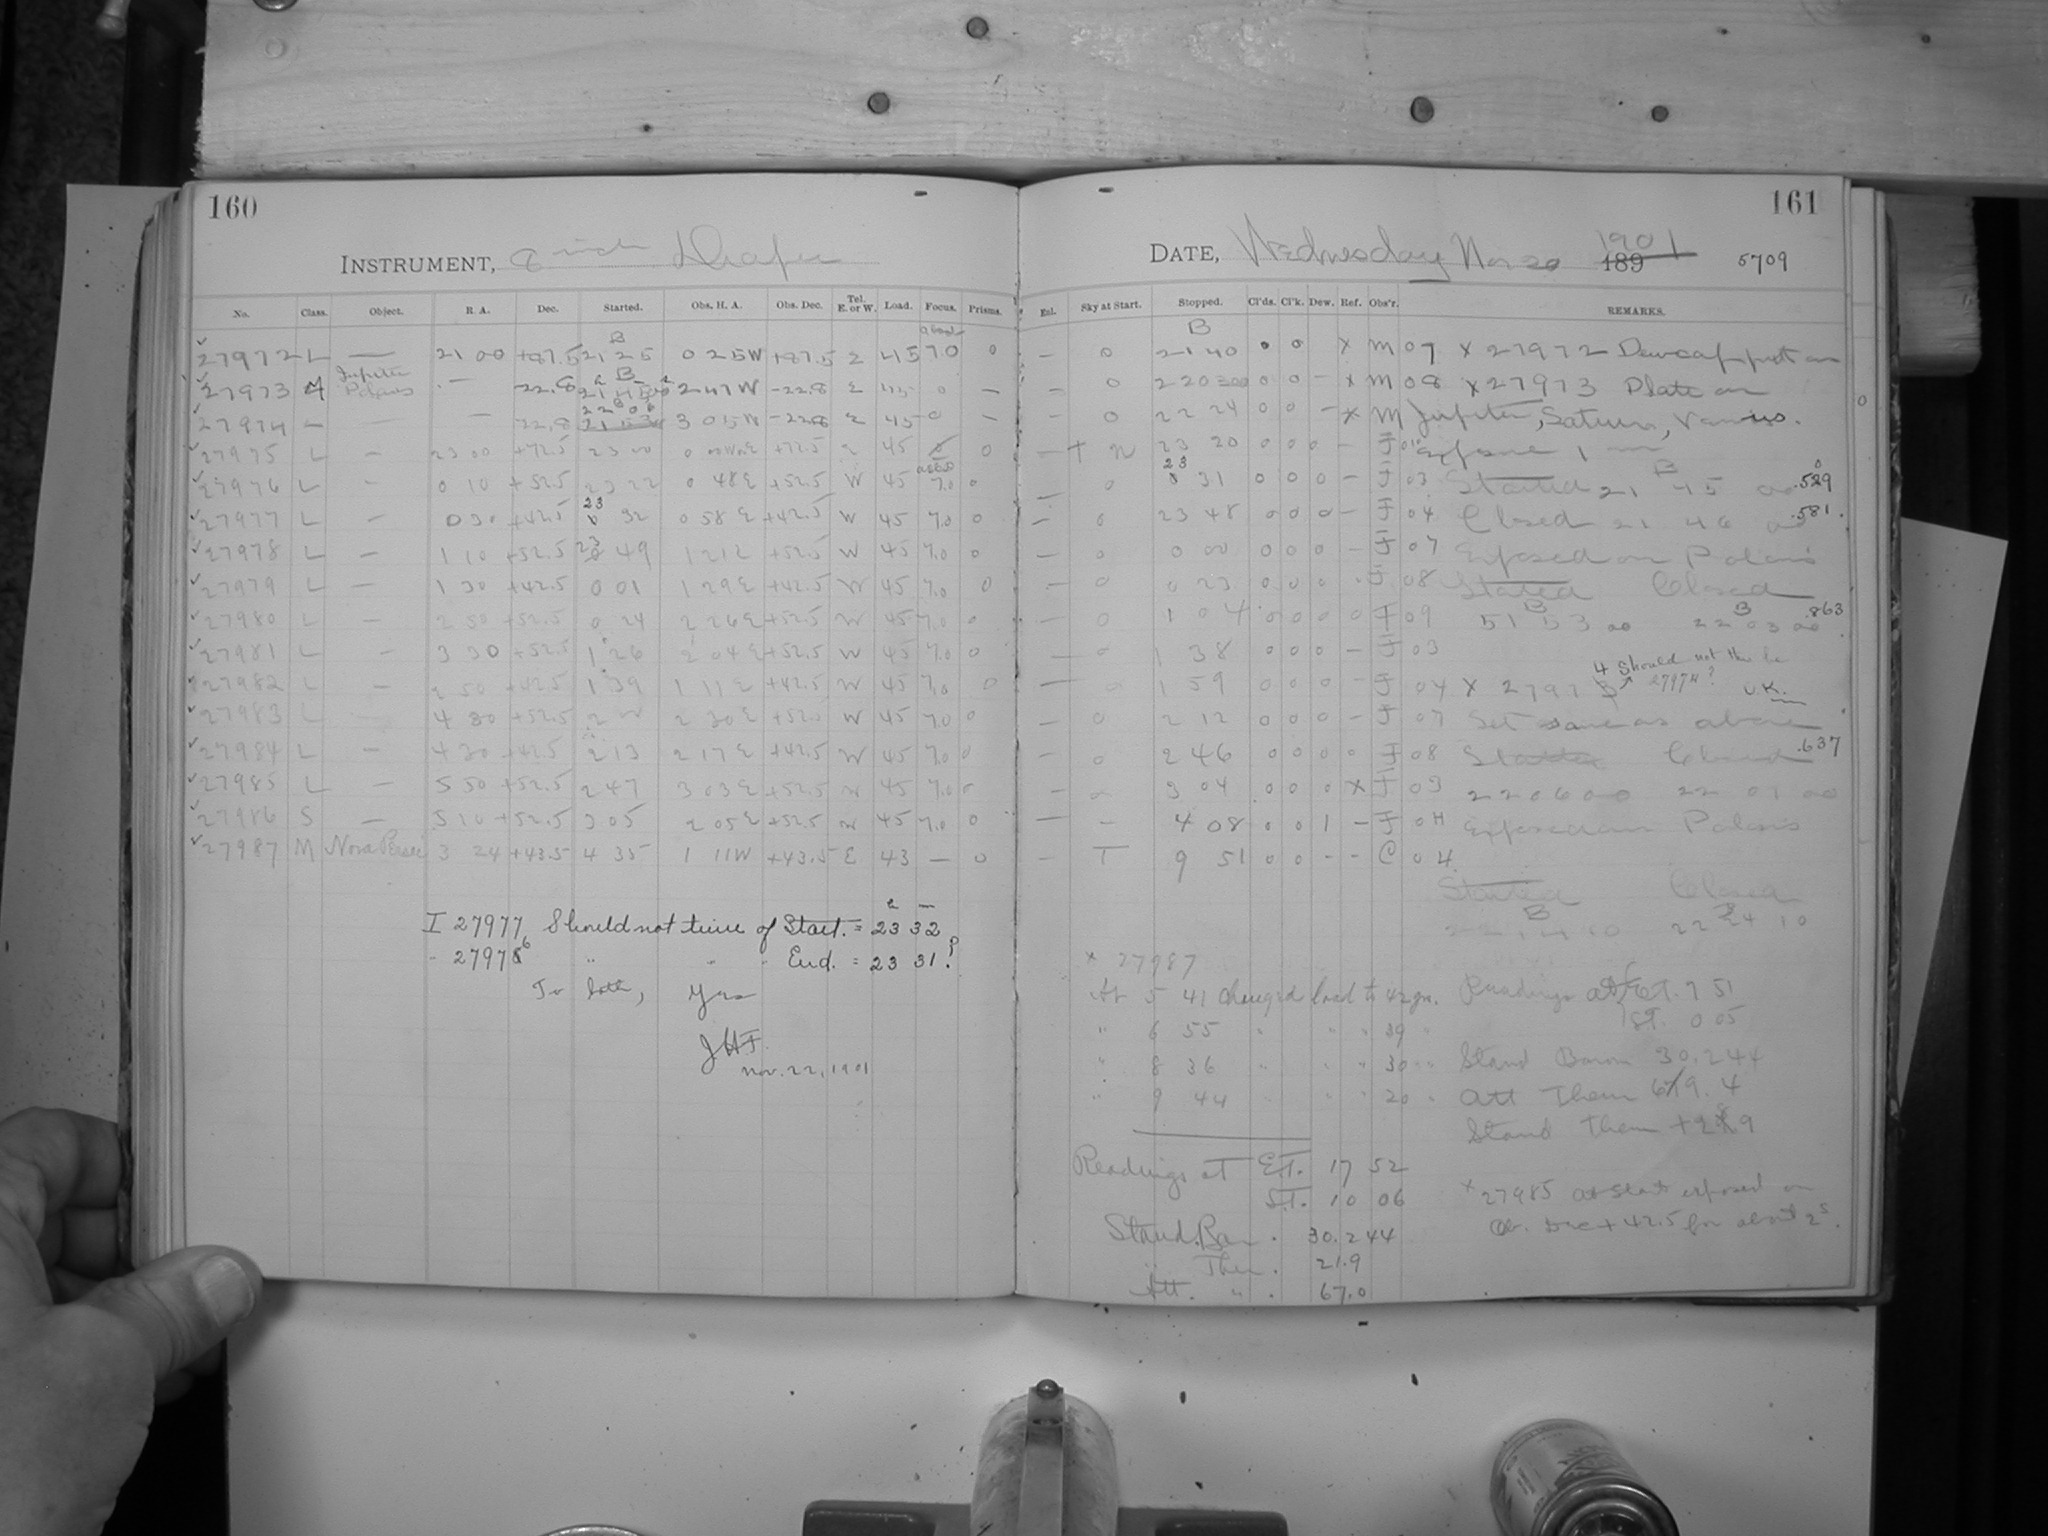 160
INSTRUMENT, 8 inch Draper
No. Class. Object. R. A. Dec. Started. Obs. H. A. Obs. Dec. Tel. E. or W. Load. Focus. Prisms.
27972 L — 21 00 +87.5 21 25 0 25W +87.5 E 45 7.0 0
27973 M Jupiter Polaris — -22.8 2 47 W -22.8 E 45 0 —
27974 — — — 22.8 22 06 3 05W -22.8 E 45 0 —
27975 L — 23 00 +72.5 23 00 +72.5 E 45 0
27976 L — 0 10 +52.5 23 22 0 48E +52.5 W 45 7.0 0
27977 L — 0 30 +42.5 23 32 0 58 E +42.5 W 45 7.0 0
27978 L — 1 10 +52.5 23 49 1 21E +52.5 W 45 7.0 0
27979 L — 1 30 +42.5 0 01 1 29E +42.5 W 45 7.0 0
27980 L — 2 50 +52.5 0 24 2 26E +52.5 W 45 7.0 0
27981 L — 3 30 +52.5 1 26 2 04E +52.5 W 45 7.0 0
27982 L — 2 50 +42.5 1 39 1 11E +42.5 W 45 7.0 0
27983 L 4 30 +52.5 2 30E +52.5 W 45 7.0 0
27984 L — 4 30 +42.5 2 13 2 17E +42.5 W 45 7.0 0
27985 L — 5 50 +52.5 2 47 3 03E +52.5 W 45 7.0 0
27986 S — 5 10 +52.5 3 05 2 05E +52.5 W 45 7.0 0
27987 M Nova Persei 3 24 +43.5 4 35 1 11W +43.5 E 43 — 0
I 27977 Should not time of Start. = 23 32
" 27976 " " " End. = 23 31?
To both, Yes
JHF.
Nov. 22, 1901
161
DATE, Wednesday Nov 20 1901 189 5709
Enl. Sky at Start. Stopped. Cl'ds. Cl'k. Dew. Ref. Obs'r. REMARKS.
— 0 B 21 40 0 0 x M 07 x 27972 Dewcap put on
— 0 22 0 0 — x M 08 x 27973 Plate on
0 22 24 0 0 — x M Jupiter, Saturn,
— 23 20 0 0 0 — F
— 0 23 31 0 0 0 — F 03 Started 21 B 45 00 .529
— 0 23 48 0 0 0 — F 04 Closed 21 46 00 .581
— 0 0 00 0 0 0 — F 07 Exposed on Polaris
— 0 0 23 0 0 0 - F 08 Started Closed
— 0 1 04 0 0 0 0 F 09 B 53 00 22 B 03 00 .863
0 1 38 0 0 0 — F 03
4 Should not this be
— 1 59 0 0 0 — F 04 x 27973 27974? U.K.
— 0 2 12 0 0 0 — F 07 Set same as above
— 0 2 46 0 0 0 0 F 08 Started Closed .637
— 3 04 0 0 0 x F 03 22 06 00 22 01 00
— — 4 08 0 0 1 — F 04 Exposed on Polaris
— T 9 51 0 0 — — C 04
Started Closed
B 10 22 24 10
x 27987
At 5 41 changed load to 42 gr. Readings at E.T. 7 51
" 6 55 " " " 39 " ST. 0 05
" 8 36 " " " 30 " Stand Barom 30.244
" 9 44 " " " 20 " Att Therm 69.4
Stand Therm
Readings at E.T. 17 52
S.T. 10 06 x 27985 at start exposed on
Ob. Dec + 42.5 for about 2s.
Stand. Bar. 30.244
" Ther. 21.9
Att. " . 67.0